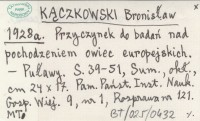 KĄCZKOWSKI Bronisław
1928a. Przyczynek do badań nad
pochodzeniem owiec europejskich.
– Puławy. S. 39-51, Sum.,
cm 24 x 17. Pam. Państ. Inst. Nauk.
Gosp. Wiej. 9, nr 1, Rozprawa 121.
BT/025/0432